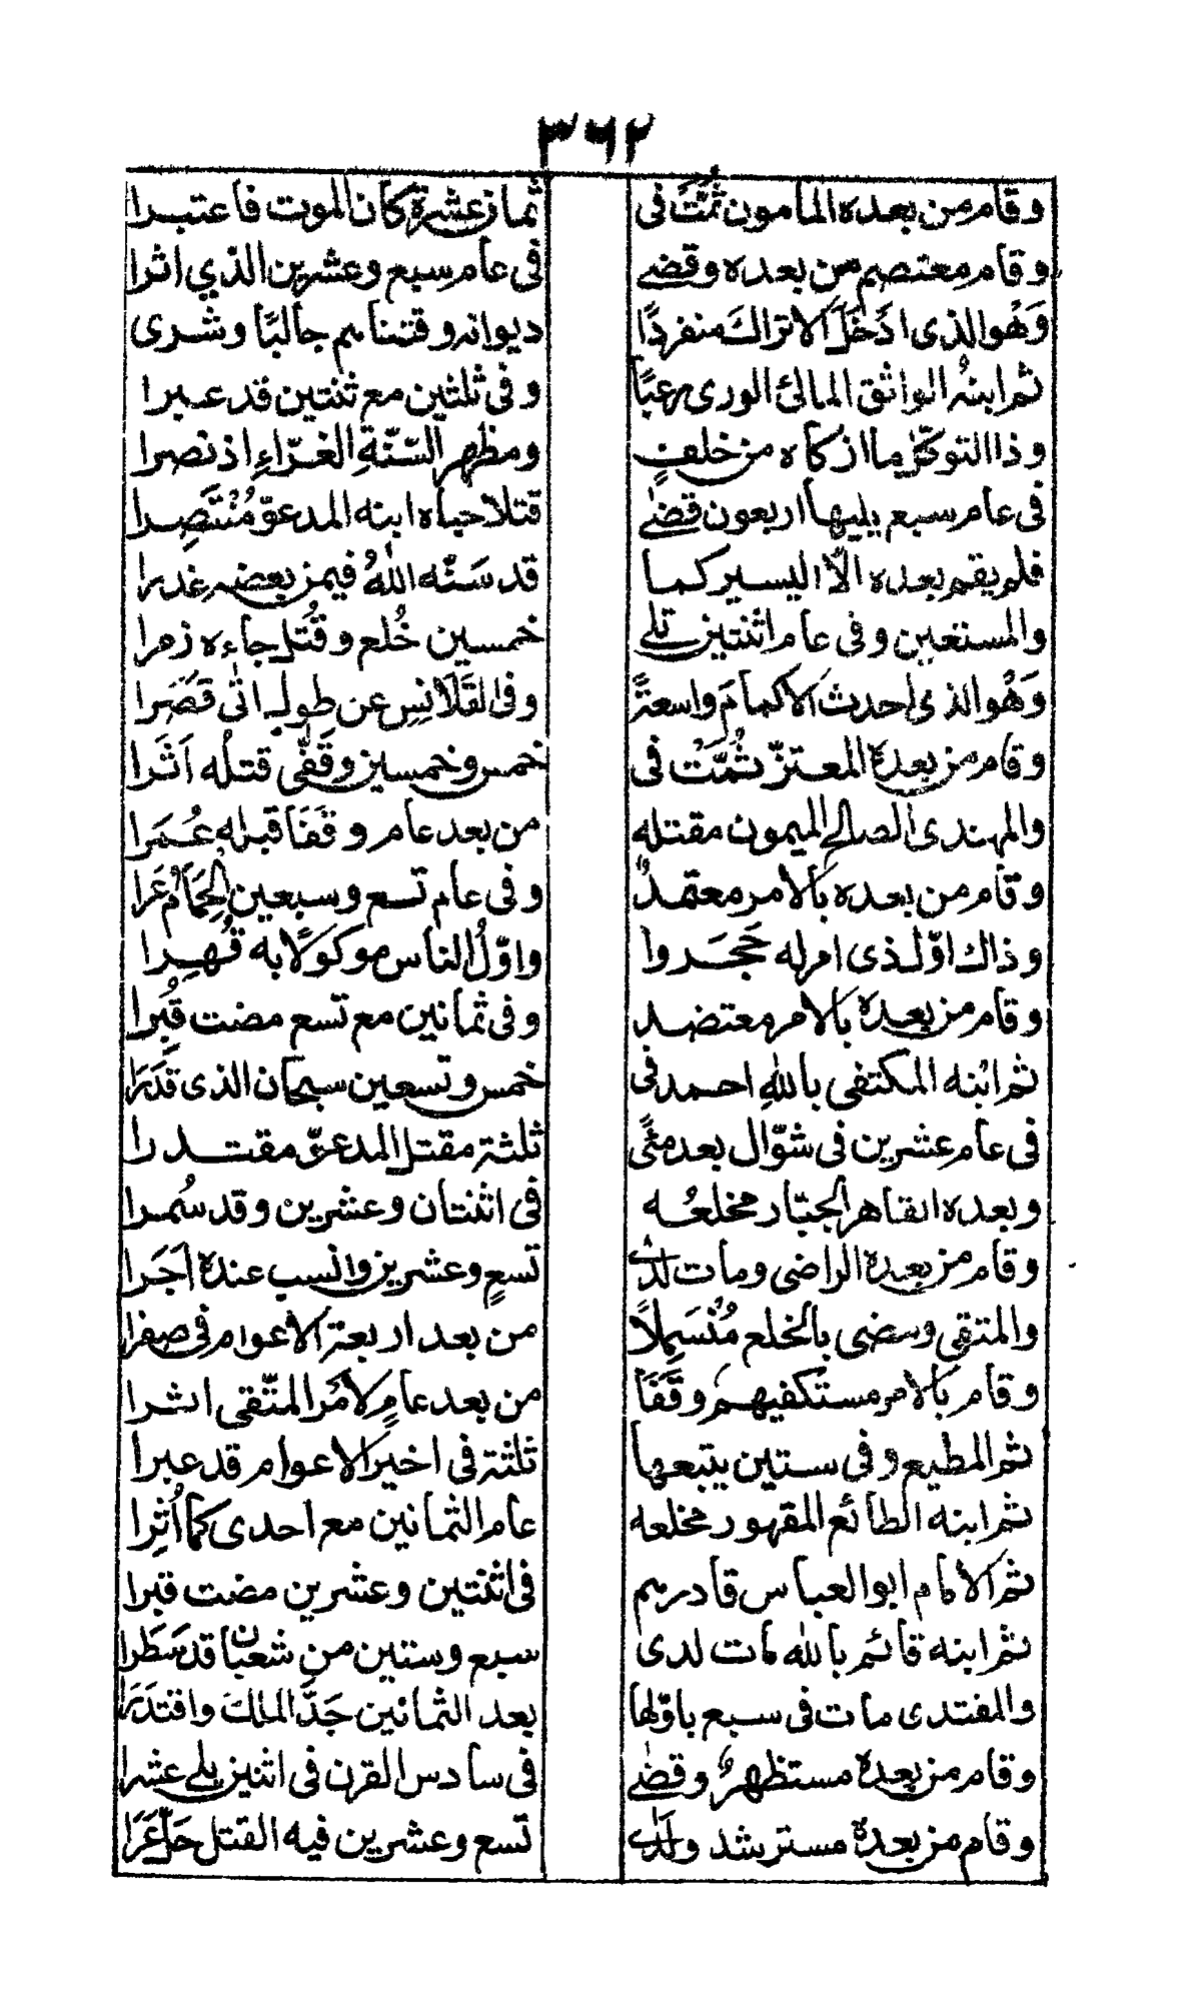 ٣٦٢
وقام من بعده المامون ثُمَّتَ فى ثمان عشرة كان الموت فاعتبرا
وقام معتصم من بعده وقضى فى عام سبع وعشرين الذي اثرا
وَهْوالذى ادْخَلَ الاتراكَ منفردًا ديوانه وقتنابهم جالبًا وشرى
ثم ابنهُ الواثق المالئ الورى رعبًا وفى ثلثين مع ثنتين قد عبرا
وذا التوكّل ما ازكاه من خلفٍ ومظهر السّنّةِ الغرّاءِ اذ نصرا
فى عام سبع يليها اربعون قضى قتلا حباه ابنه المدعوّ مُنْتَصِرا
فلم يقم بعده الّا اليسير كما قد سَنّه اللهُ فيمن بعضه غدرا
والمستعين وفى عام اثنتين تلى خمسين خُلع وقُتل جاءه زمرا
وَهْوالذى احدث الاكمامَ واسعةً وفى القَلَانِسِ عن طولٍ اتى قَصَرا
وقام من بعده المعتزّ ثُمَّتَ فى خمس وخمسين وقَفّى قتلُه اَثَرا
والمهتدى الصالح الميمون مقتله من بعد عام وقَفَا قبراه عُمَرا
وقام من بعده بالامر معتمدٌ وفى عام تسع وسبعين الحِمَامُ عَرا
وذاك اوّل ذى امر له حَجَروا واوّلُ الناس موكولًا به قُهِرا
وقام من بعده بالامر معتضد وفى ثمانين مع تسع مضت قُبِرا
ثم ابْنه المكتفى باللهِ احمد فى خمس وتسعين سبحان الذى قَدَرَا
فى عام عشرين فى شوّال بعد مئًى ثلثة مقتل المدعوّ مقتدرا
وبعده القاهر الجبّار مخلعُه فى اثنتان وعشرين وقد سُمرا
وقام من بعده الراضى ومات لدى تسعٍ وعشرين وانسب عنده اَجَرا
والمتقى ومضى بالخلع مُنْسَمِلًا من بعد اربعة الاعوام فى صفرا
وقام بالامر مستكفيهم وقَفَا من بعد عامٍ لامْر المتّقى اثرا
ثم المطيع وفى ستين يتبعها ثلثة فى اخير الاعوام قد عبرا
ثم ابنه الطائع المقهور مخلعه عام الثمانين مع احدى كما اُثِرا
ثم الامام ابوالعباس قادرهم فى اثنتين وعشرين مضت قبرا
ثم ابنه قائم بالله مات لدى سبع وستين من شعبان قد سَطَرا
والمقتدى مات فى سبع باوّلها بعد الثمانين جَدَّ الملكَ واقتدَرَا
وقام من بعده مستظهرٌ وقضى فى سادس القرن فى اثنين يلى عشرا
وقام من بعده مسترشد ولدى تسع وعشرين فيه القتل حَلّ عَرَا